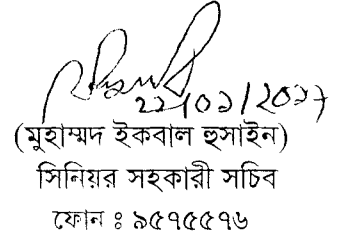 ২২/০১/২০১৭
(মুহাম্মদ ইকবাল হুসাইন)
সিনিয়র সহকারী সচিব
ফোন ঃ ৯৫৭৫৫৭৬